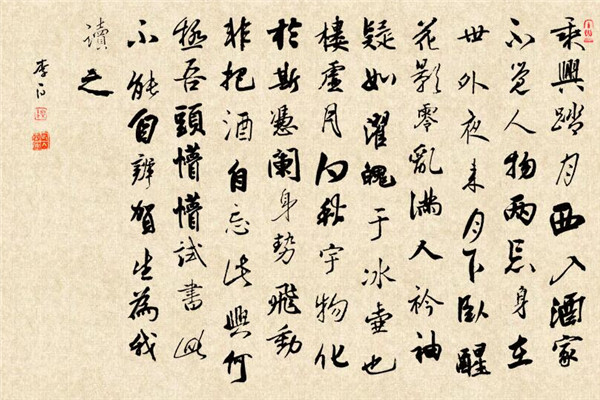 乘興踏月西入酒家
不覺人物兩忘身在
世外夜來月下臥醒
花影零亂滿人衿袖
疑如濯魄于冰壺也
樓虛月白秋宇物化
於斯憑闌身勢飛動
非把酒自忘此興何
極吾頭懵懵試書此
不能自辨賀生為我
讀之
李白